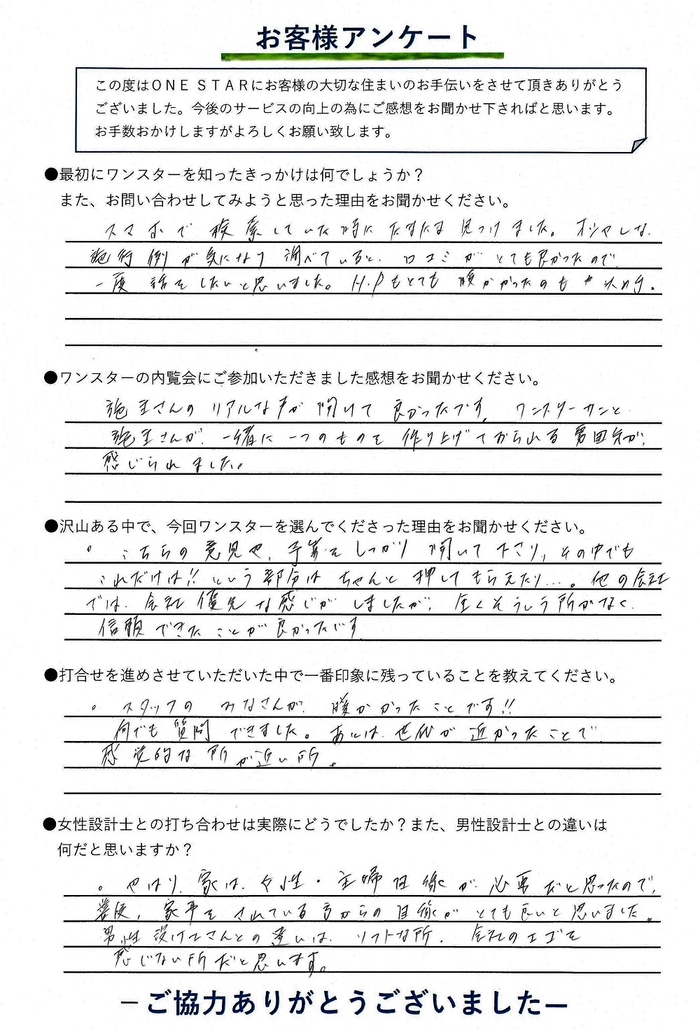 お客様アンケート
この度はONE STARにお客様の大切な住まいのお手伝いをさせて頂きありがとう
ございました。今後のサービスの向上の為にご感想をお聞かせ下さればと思います。
お手数おかけしますがよろしくお願い致します。
●最初にワンスターを知ったきっかけは何でしょうか？
また、お問い合わせしてみようと思った理由をお聞かせください。
スマホで検索していた時にたまたま見つけました。オシャレな
施行例が気になり調べていると、口コミがとても良かったので
一度話をしたいと思いました。H.Pもとても暖かかったのも
●ワンスターの内覧会にご参加いただきました感想をお聞かせください。
施主さんのリアルな声が聞けて良かったです。ワンスターサンと
施主さんが、一緒に一つのものを作り上げてからられる雰囲気が、
感じられました。
●沢山ある中で、今回ワンスターを選んでくださった理由をお聞かせください。
。こちらの意見や、予算をしっかり聞いて下さり、その中でも
これだけは!!という部分はちゃんと押してもらえたり…。他の会社
では、会社優先な感じがしましたが、全くそういう所がなく、
信頼できたことが良かったです
●打合せを進めさせていただいた中で一番印象に残っていることを教えてください。
。スタッフのみなさんが、暖かかったことです!!
何でも質問できました。あとは、世代が近かったことで
感覚的な所が近い所。
●女性設計士との打ち合わせは実際にどうでしたか？また、男性設計士との違いは
何だと思いますか？
。やはり、家は、女性・主婦目線が必要だと思ったので、
普段、家事をされている方からの目線がとても良いと思いました。
男性設計士さんとの違いは、ソフトな所、会社のエゴを
感じない所だと思います。
−ご協力ありがとうございましたー